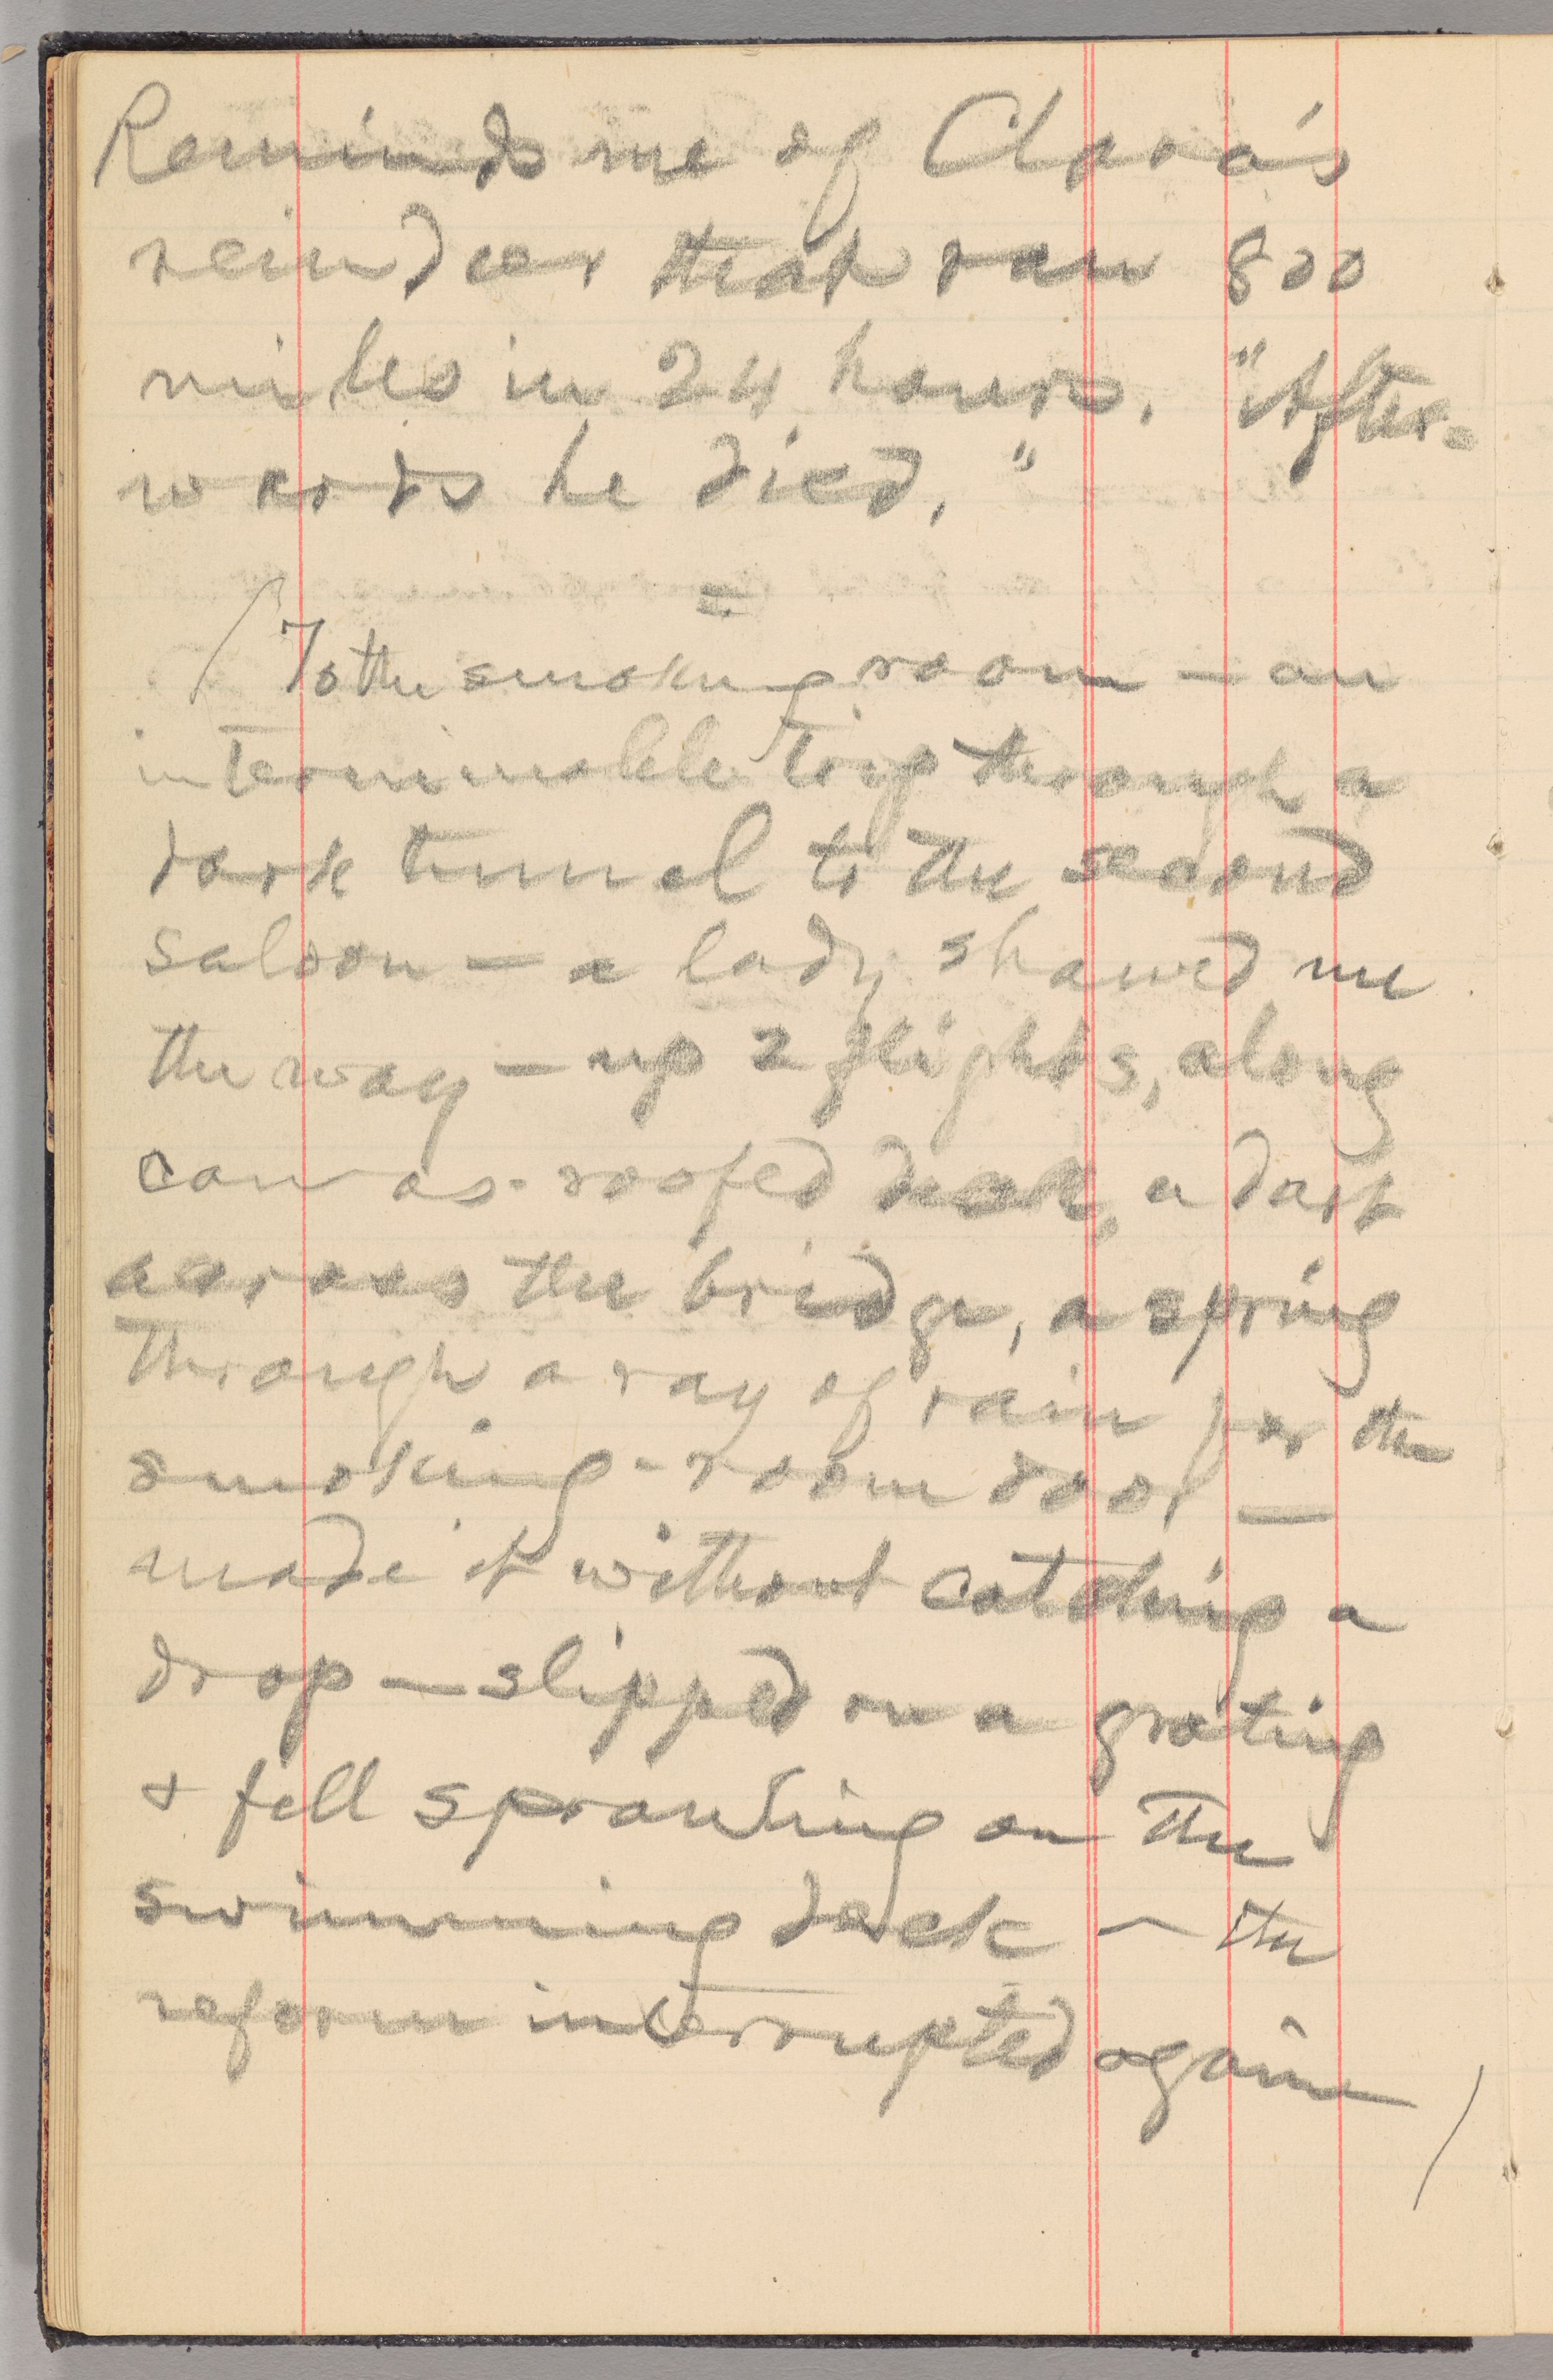 Reminds me of Clara's
reindeer that ran 800
miles in 24 hours. "After-
wards he died."
=
(To the smoking room — an
interminable trip through a
dark tunnel to the second
saloon — a lady showed me
the way — up 2 flights, along
canvas-roofed deck, a dart
across the bridge, a spring
through a ray of rain for the
smoking-room door —
made it without catching a
drop — slipped on a grating
& fell sprawling on the
swimming deck — the
reform interrupted again)